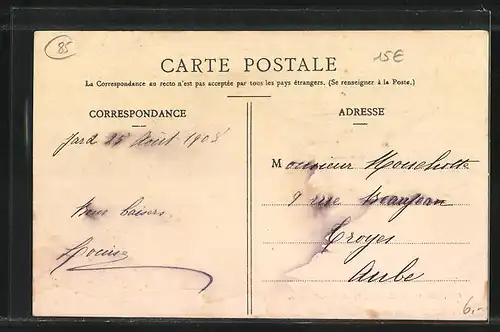 85
15€
CARTE POSTALE
La Correspondance au recto n'est pas acceptée par tous les pays étrangers. (Se renseigner à la Poste.)
CORRESPONDANCE
ADRESSE
Jard 25 Août 1908
Monsieur
9 rue Beaujean
Bons baisers
Troyes
Louise
Aube
6.-